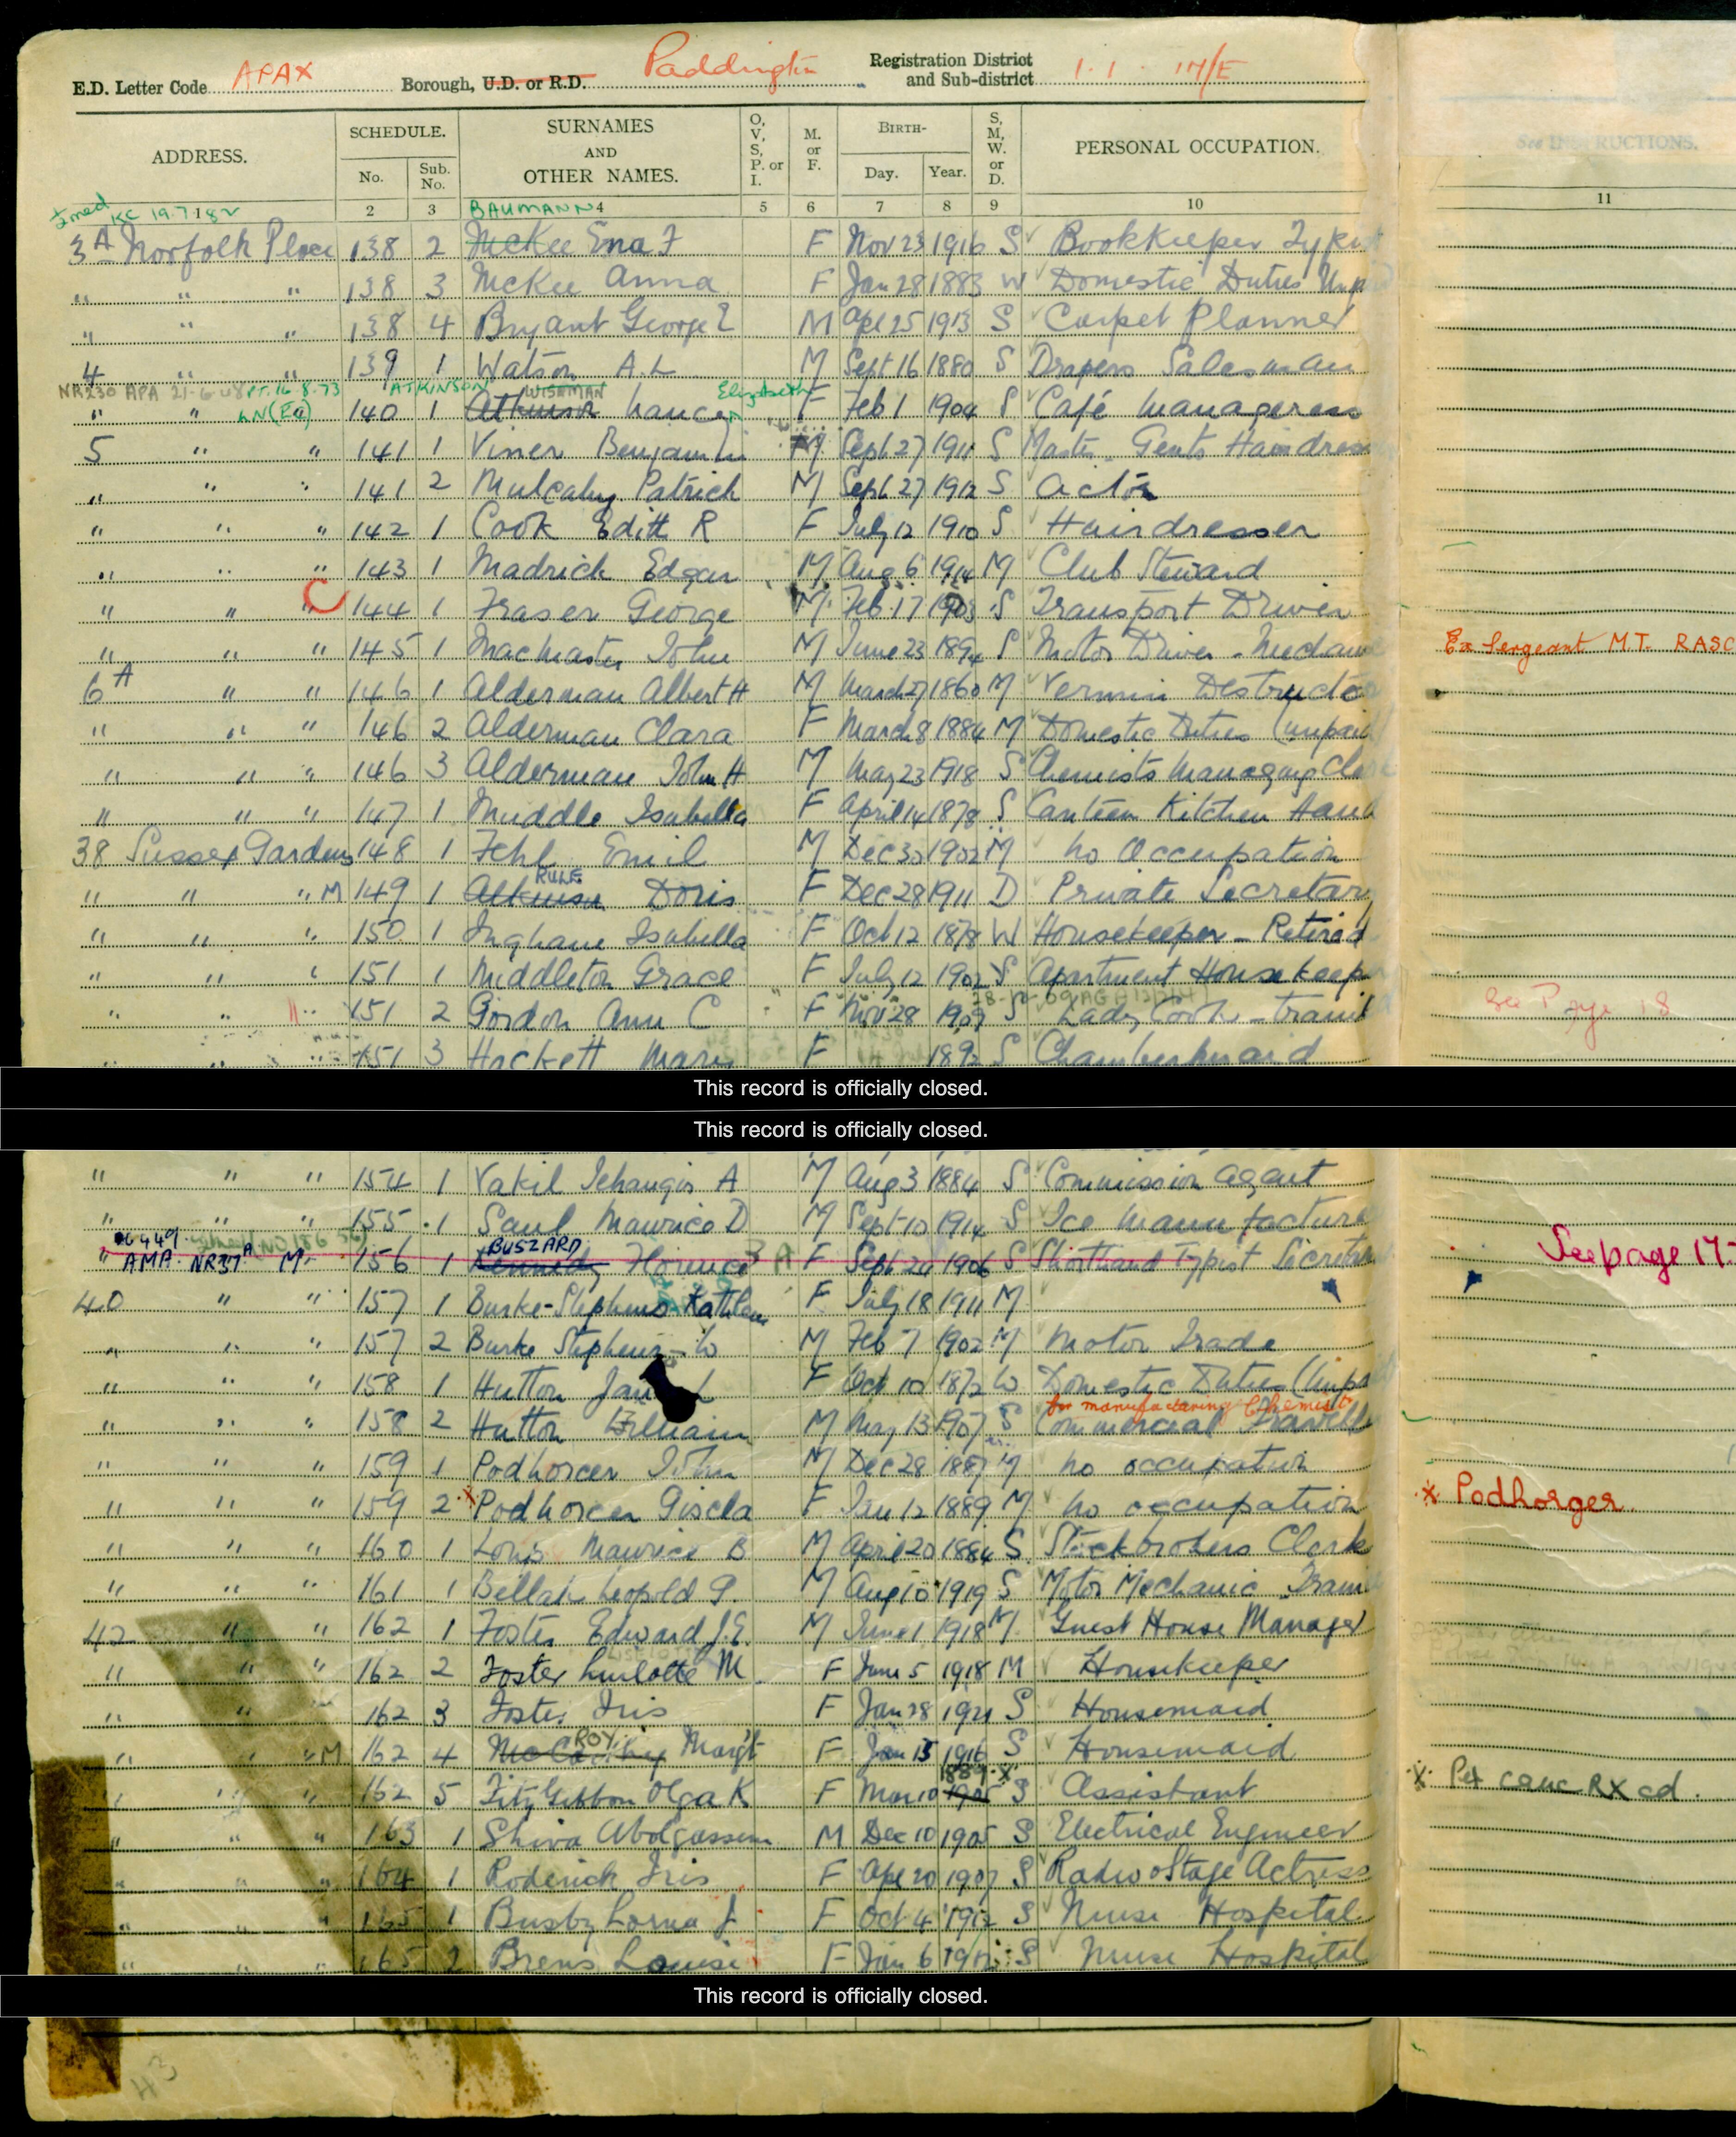 E.D. Letter Code APAX Borough, U.D. or R.D. Paddington Registration District and Sub-district 1.1 17/E
ADDRESS. SCHEDULE. No. Sub. No. SURNAMES AND OTHER NAMES. O, V, S, P. or I. M. or F. BIRTH- Day. Year. S, M, W. or D. PERSONAL OCCUPATION. See INSTRUCTIONS.
KC 19.7.82
1 2 3 4 5 6 7 8 9 10 11
BAUMANN
3A Norfolk Place 138 2 McKee Ena F F Nov 23 1916 S Bookkeeper Typist
" " " 138 3 McKee Anna F Jan 28 1883 W Domestic Duties Unp
" " " 138 4 Bryant George E M Apl 25 1913 S Carpet Planner
4 " " 139 1 Watson A. L M Sept 16 1880 S Drapers Salesman
NR230 APA 21-6-48 16.8.73 ATKINSON WISEMAN Elizabeth
" " 140 1 Atkinson Nancy F Feb 1 1904 S Café Manageress
5 " " 141 1 Viner Benjamin M Sept 27 1911 S Master Gents Hairdress
" " " 141 2 Mulcahy Patrick M Sept 27 1912 S Actor
" " " 142 1 Cook Edith R F July 12 1910 S Hairdresser
" " " 143 1 Madrick Edgar M Aug 6 1914 M Club Steward
" " " C 144 1 Fraser George M Feb 17 1903 S Transport Driver
" " " 145 1 MacMaster John M June 23 1894 S Motor Driver - Mechanic Ex Sergeant M.T. RASC
6A " " 146 1 Alderman Albert H M March 27 1860 M Vermin Destructor
" " " 146 2 Alderman Clara F March 8 1884 M Domestic Duties (unpaid
" " " 146 3 Alderman John H M May 23 1918 S Chemists Managing Cler
" " " 147 1 Muddle Isabella F April 14 1878 S Canteen Kitchen Hand
38 Sussex Gardens 148 1 Fehl Emil M Dec 30 1902 M No Occupation
RULE
" " " M 149 1 Atkinson Doris F Dec 28 1911 D Private Secretary
" " " 150 1 Ingham Isabella F Oct 12 1878 W Housekeeper - Retired
" " " 151 1 Middleton Grace F July 12 1902 S Apartment Housekeep
" " " 151 2 Gordon Ann C F Nov 28 1909 S Lady Cook - train See Page 18
" " " 151 3 Hackett Mary F 1892 S Chambermaid
This record is officially closed.
This record is officially closed.
" " " 154 1 Vakil Jehangir A M Aug 3 1884 S Commission Agent
" " " 155 1 Saul Maurice D M Sept 10 1914 S Ice Manufacture
BUSZARD
" AMA. NR37A M 156 1 Kennedy Florence F Sept 20 1906 S Shorthand Typist Secreta See page 17
40 " " 157 1 Burke-Stephens Kathleen F July 18 1911 M
" " " 157 2 Burke Stephens W M Feb 7 1902 M Motor Trade
" " " 158 1 Hutton F Oct 10 1872 W Domestic Duties (Unpa
for manufacturing Chemists
" " " 158 2 Hutton William M May 13 1907 S Commercial Travelle
" " " 159 1 Podhorcer John M Dec 28 1887 M No occupation
" " " 159 2 x Podhorcer Gisela F Jan 12 1889 M No occupation x Podhorger
" " " 160 1 Louis Maurice B M April 20 1884 S Stockbrokers Clerk
" " " 161 1 Bellak Leopold P. M Aug 10 1919 S Motor Mechanic Train
42 " " 162 1 Foster Edward J.E. M June 1 1918 M Guest House Manager
" " " 162 2 Foster Lurlotte M F June 5 1918 M Housekeeper
" " " 162 3 Foster Iris F Jan 28 1921 S Housemaid
ROY
" " " M 162 4 McCarthy Margt F Jan 15 1916 S Housemaid
1889 x
" " " 162 5 FitzGibbon Olga K F Mar 10 S Assistant x Per canc RX cd.
" " " 163 1 Shiva Abolgassem M Dec 10 1905 S Electrical Engineer
" " " 164 1 Roderick Iris F Apl 20 1907 S Radio & Stage Actress
" " " 165 1 Busby Lorna J F Oct 4 1912 S Nurse Hospital
" " " 165 2 Brens Louise F Jan 6 1912 S Nurse Hospital
This record is officially closed.
43